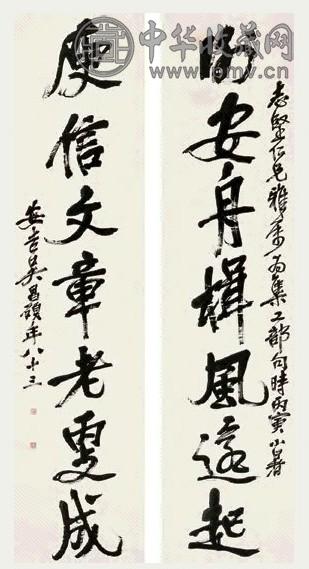 中华收藏网
www.pmv.cn
志堅仁兄雅屬為集工部句時丙寅小暑
謝安舟楫風還起
庾信文章老更成
安吉吳昌碩年八十三